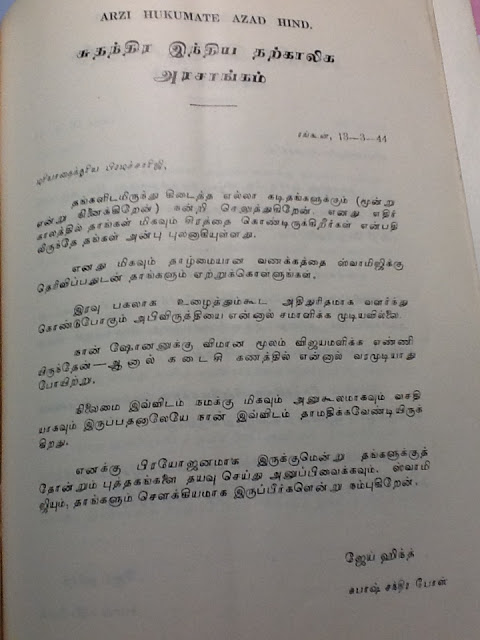 ARZI HUKUMATE AZAD HIND.
சுதந்திர இந்திய தற்காலிக
அரசாங்கம்
ரங்கூன், 13-3-44
மரியாதைக்குரிய பிரமச்சாரிஜி,
தங்களிடமிருந்து கிடைத்த எல்லா கடிதங்களுக்கும் (மூன்று
என்று நினைக்கிறேன்) நன்றி செலுத்துகிறேன். எனது எதிர்
காலத்தில் தாங்கள் மிகவும் சிரத்தை கொண்டிருக்கிறீர்கள் என்பதி
லிருந்தே தங்கள் அன்பு புலனாகியுள்ளது.
எனது மிகவும் தாழ்மையான வணக்கத்தை ஸ்வாமிஜிக்கு
தெரிவிப்பதுடன் தாங்களும் ஏற்றுக்கொள்ளுங்கள்.
இரவு பகலாக உழைத்தும்கூட அதிதுரிதமாக வளர்ந்து
கொண்டுபோகும் அபிவிருத்தியை என்னால் சமாளிக்க முடியவில்லை.
நான் ஷோனனுக்கு விமான மூலம் விஜயமளிக்க எண்ணி
யிருந்தேன்—ஆனால் கடைசி கணத்தில் என்னால் வரமுடியாது
போயிற்று.
நிலைமை இவ்விடம் நமக்கு மிகவும் அனுகூலமாகவும் வசதி
யாகவும் இருப்பதனாலேயே நான் இவ்விடம் தாமதிக்கவேண்டியிருக்
கிறது.
எனக்கு பிரயோஜனமாக இருக்குமென்று தங்களுக்குத்
தோன்றும் புத்தகங்களை தயவு செய்து அனுப்பிவைக்கவும். ஸ்வாமி
ஜியும், தாங்களும் சௌக்கியமாக இருப்பீர்களென்று நம்புகிறேன்.
ஜேய் ஹிந்த்
சுபாஷ் சந்திர போஸ்